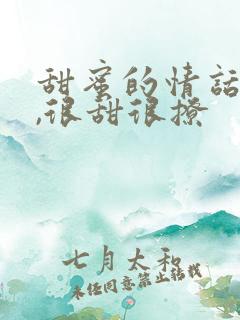 甜蜜的情话
,很甜很撩
七月太和
未经同意禁止转载